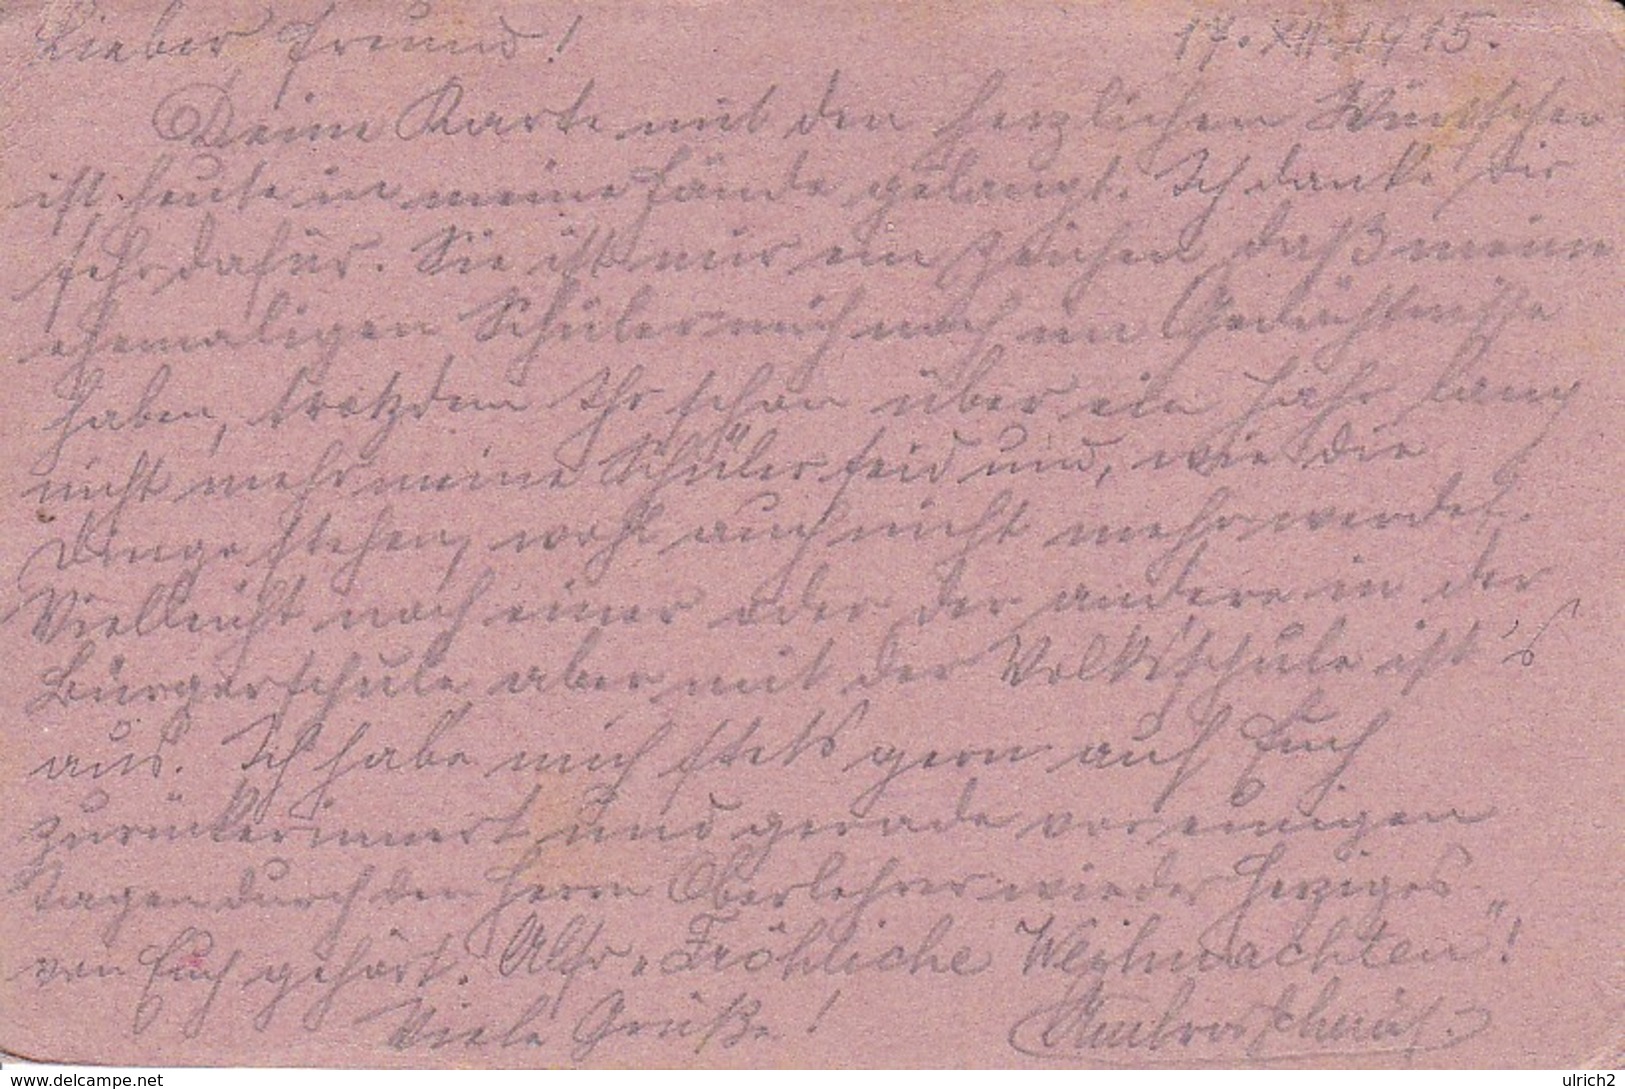 Lieber Freund! 17. XII. 1915.
Deine Karte mit den herzlichen Wünschen
ist heute in meine Hände gelangt. Ich danke Dir
sehr dafür. Sie ist mir ein Zeichen, daß meine
ehemaligen Schüler mich noch im Gedächtnisse
haben, trotzdem Ihr schon über ein Jahr lang
nicht mehr meine Schüler seid und, wie die
Dinge stehen, wohl auch nicht mehr werdet.
Vielleicht noch einer oder der andere in der
Bürgerschule aber mit der Volksschule ist's
aus. Ich habe mich stets gern auf Euch
zurückerinnert und gerade vor einigen
Tagen durch den Herrn Oberlehrer wieder
von Euch gehört. Also „Fröhliche Weihnachten"!
Viele Grüße!
delcampe.net
ulrich2